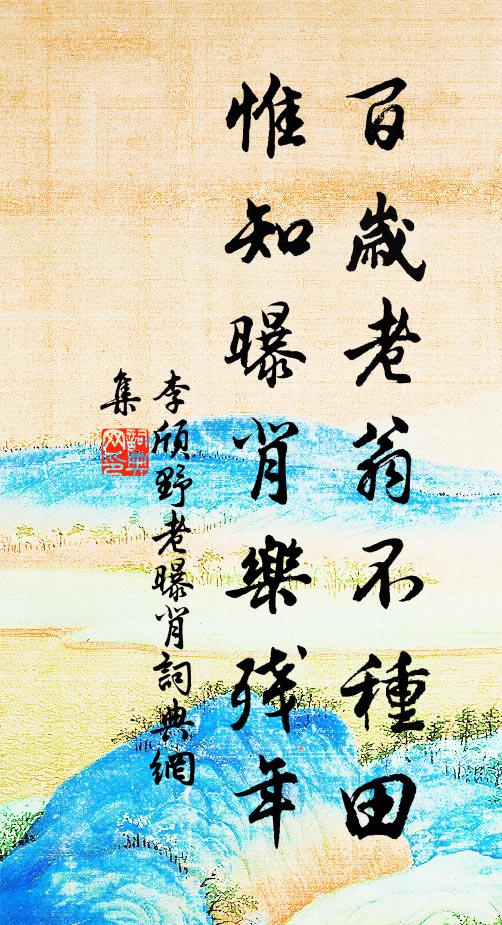 百歲老翁不種田
惟知曝背樂殘年
李頎野老曝背詞典網
集